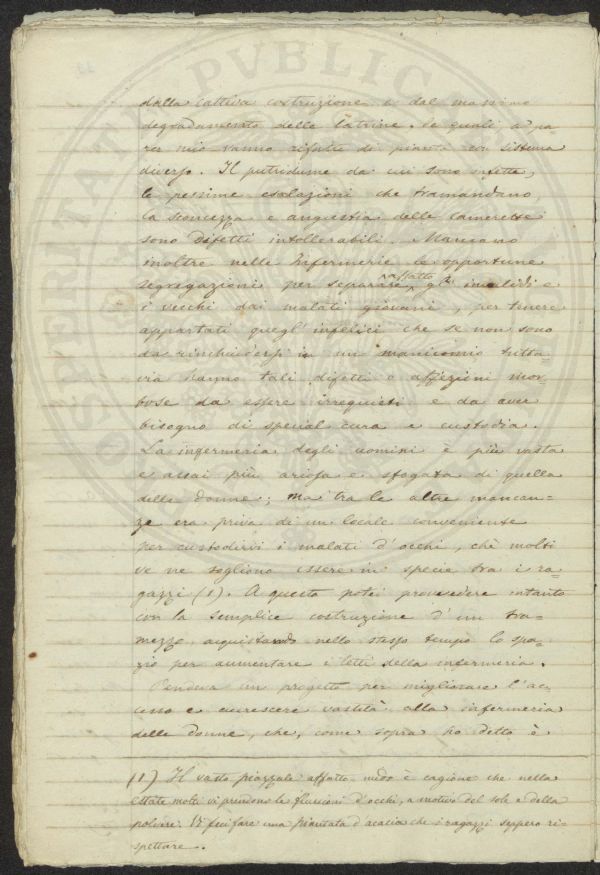 dalla cattiva costruzione e dal massimo
degradamento delle latrine, le quali a pa=
rer mio vanno rifatte di pianta con sistema
diverso. Il putridume da cui sono infette,
le pessime esalazioni che tramandano
la sconcezza e angustia delle camerette
sono difetti intollerabili. Mancano
inoltre nelle Infermerie le opportune
segregazioni per separare affatto gli invalidi e
i vecchi dai malati giovani, per tenere
appartati quegl'infelici che se non sono
da rinchiudersi in un manicomio tutta
via hanno tali difetti o affezioni mor=
bose da essere irrequieti e da aver
bisogno di special cura e custodia.
La ingermeria degli uomini è più vasta
e assai più ariosa e sfogata di quella
delle donne; ma tra le altre mancan=
ze era priva di un locale conveniente
per custodirvi i malati d'occhi, chè molti
ve ne sogliono essere in specie tra i ra=
gazzi (1). A questo potei provvedere intanto
con la semplice costruzione d'un tra=
mezzo, acquistando nello stesso tempo lo spa=
zio per aumentare i letti della infermeria.
Pendeva un progetto per migliorare l'ac=
cesso e accrescere vastità alla infermeria
delle donne, che, come sopra ho detto è
(1) Il vasto piazzale affatto nudo è cagione che nella
estate molti vi prendono le flussioni d'occhi, a motivo del sole e della
polvere. Vi feci fare una piantata d'acacia che i ragazzi seppero ri=
spettare.